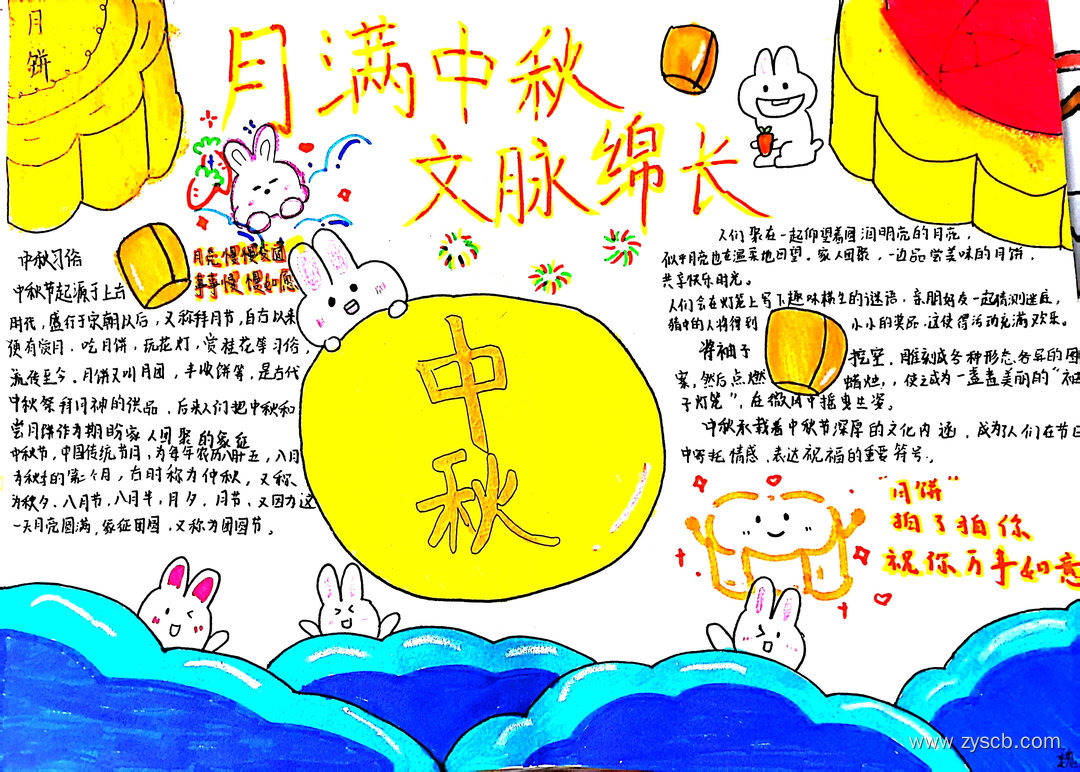 月饼
月满中秋
文脉绵长
中秋习俗
月亮慢慢变圆
事事慢慢如愿
中秋节起源于上古
时代，盛行于宋朝以后，又称拜月节，自古以来
便有赏月、吃月饼、玩花灯，赏桂花等习俗，
流传至今。月饼又叫月团，丰收饼等，是古代
中秋祭拜月神的供品，后来人们把中秋和
尝月饼作为期盼家人团聚的象征
中秋节，中国传统节日，为每年农历八月十五，八月
为秋季的第二个月，古时称为仲秋，又称
为秋夕、八月节、八月半，月夕，月节，又因为这
一天月亮圆满，象征团圆，又称为团圆节。
中秋
人们聚在一起仰望着圆润明亮的月亮，
似乎月亮也在温柔地回望。家人团聚，一边品尝美味的月饼，
共享快乐时光。
人们会在灯笼上写下趣味横生的谜语，亲朋好友一起猜测谜底，
猜中的人将得到小小的奖品，这使得活动充满欢乐。
将柚子挖空，雕刻成各种形态各异的图
案，然后点燃蜡烛，，使之成为一盏盏美丽的“柚
子灯笼”，在微风中摇曳生姿。
中秋承载着中秋节深厚的文化内涵，成为人们在节日
中寄托情感、表达祝福的重要符号。
“月饼”
拍了拍你
祝你万事如意
www.zyscb.com